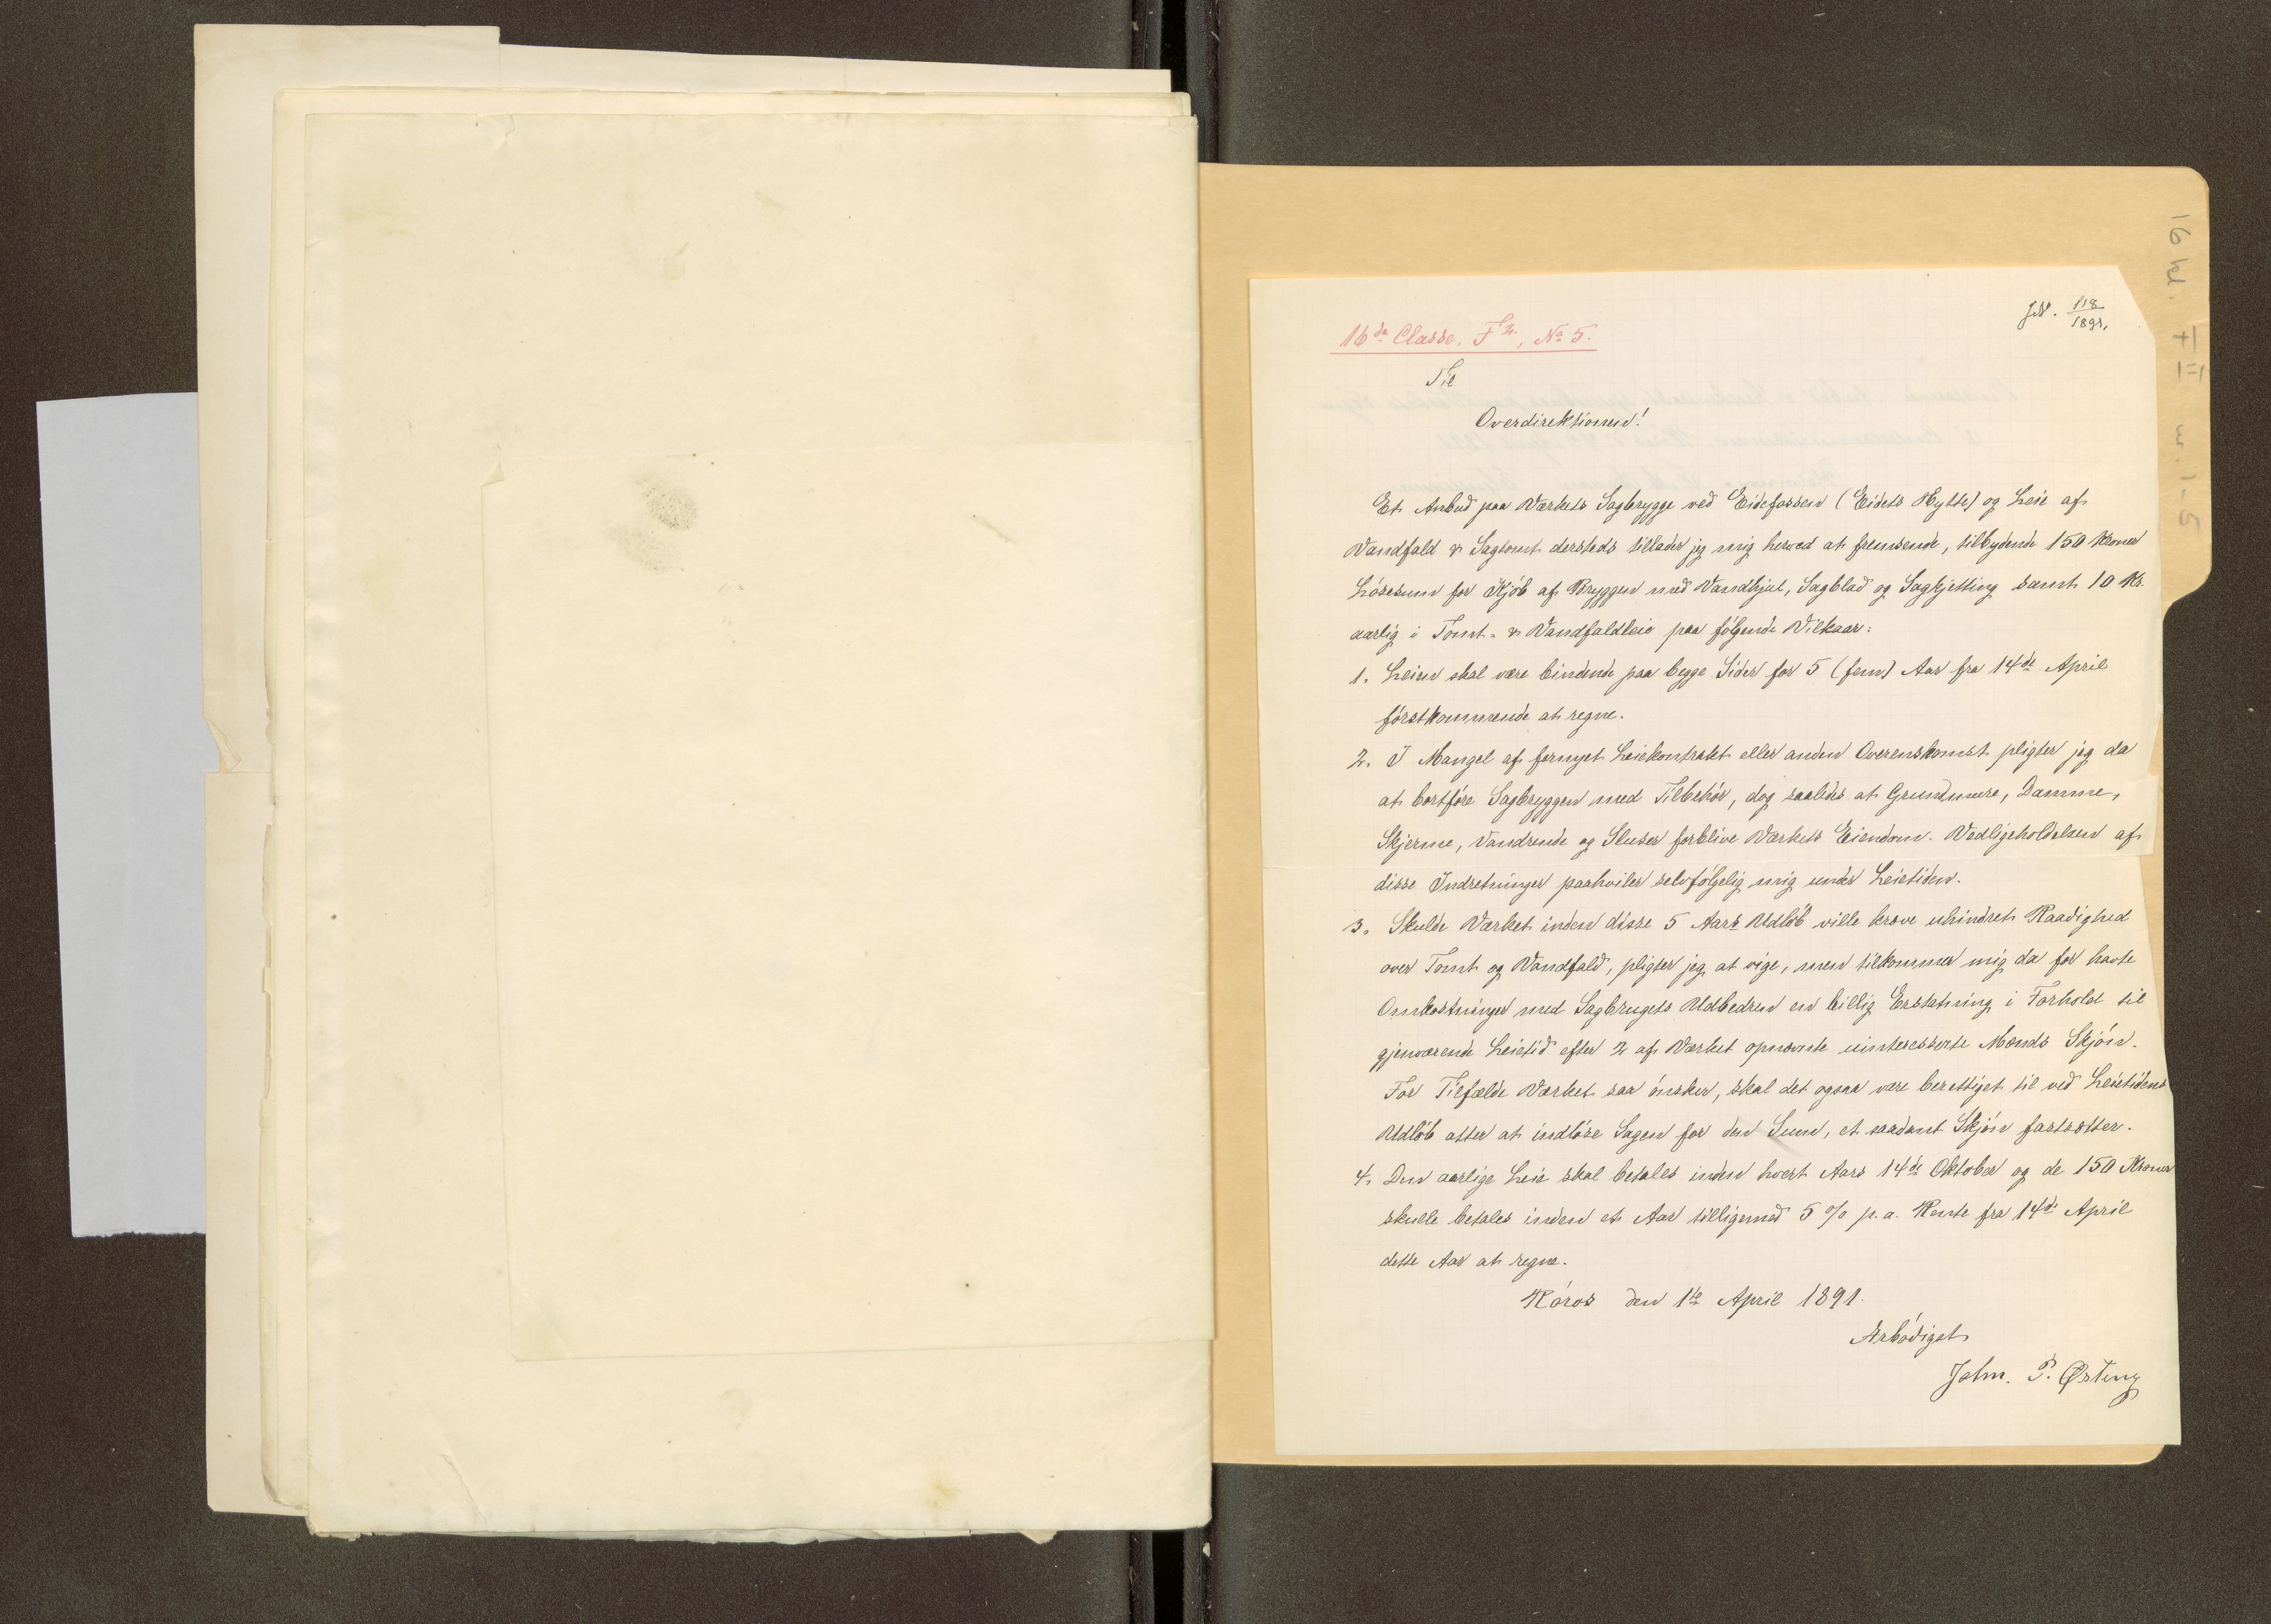 16 kl. F II nr. 1-5
JN. 118/1891.
16de Classe. F2., No 5.
Til
Overdirektionen!
Et Anbud paa Værkets Sagbrygge ved Eidefossen (Eidets Hytte) og Leie af
Vandfald & Sagtomt dersteds tillader jeg mig herved at fremsende, tilbydende 150 Kroner
Løsesum for Kjøb af Bryggen med Vandhjul, Sagblad og Sagkjetting samt 10 Kr.
aarlig i Tomt- & Vandfaldleie paa følgende Vilkaar:
1. Leien skal være bindende paa begge Sider for 5 (fem) Aar fra 14de April
førstkommende at regne.
2. I Mangel af fornyet Leiekontrakt eller anden Overenskomst pligter jeg da
at bortføre Sagbryggen med Tilbehør, dog saaledes at Grundmure, Damme,
Skjerme, Vandrende og Sluser forblive Værkets Eiendom. Vedligeholdelsen af
disse Indretninger paahviler selvfølgelig mig under Leietiden.
3. Skulde Værket inden disse 5 Aars Udløb ville kræve uhindret Raadighed
over Tomt og Vandfald, pligter jeg at vige, men tilkommer mig da for havte
Omkostninger med Sagbrugets Udbedren en billig Erstatning i Forhold til
gjenværende Leietid efter 2 af Værket opnævnte uinteresserte Mænds Skjøn.
For Tilfælde Værket saa ønsker, skal det ogsaa være berettiget til ved Leietidens
Udløb atter at indløse Sagen for den Sum, et saadant Skjøn fastsætter.
4. Den aarlige Leie skal betales inden hvert Aars 14de Oktober og de 150 Kroner
skulle betales inden et Aar tilligemed 5 % p.a. Rente fra 14de April
dette Aar at regne.
Røros den 1te April 1891.
Ærbødigst
John. P. Østeng